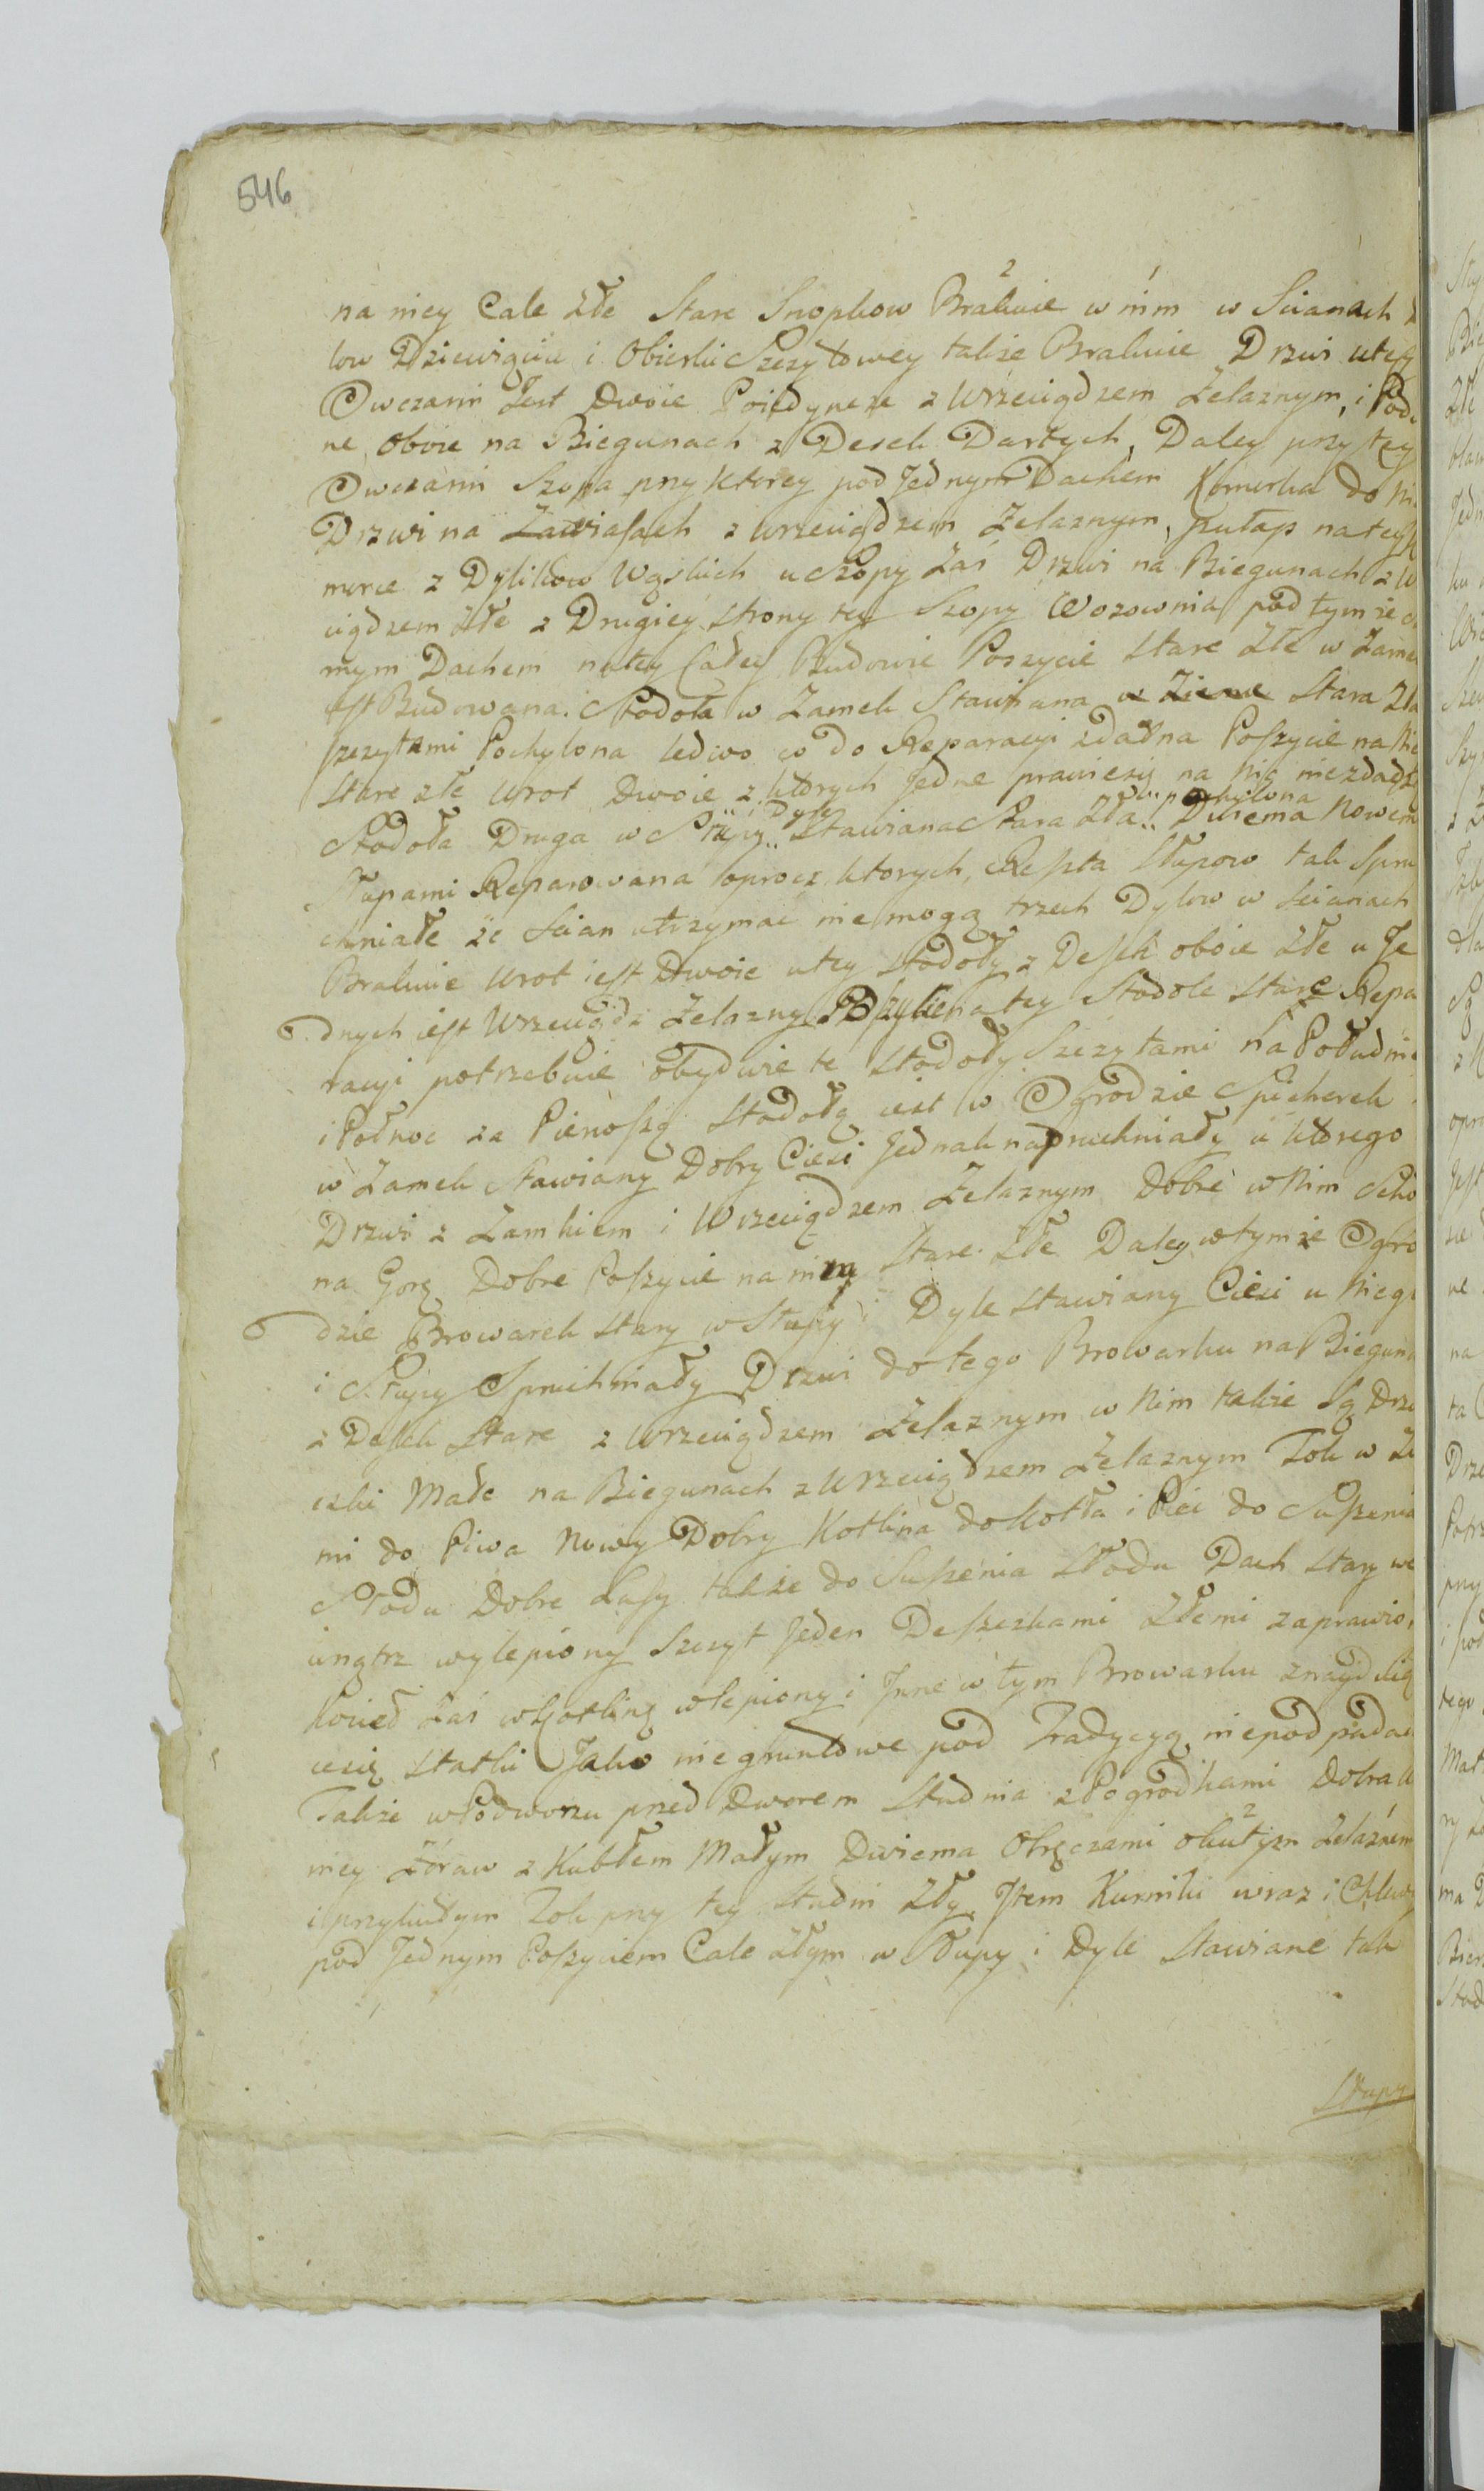 546
na niey Cale złe Stare Snopkow Brakuie w nim w Scianach
low Dziewięciu i Obierki Szczytowey także Brakuie Drzwi utey
Owczarni Jest Dwoie Poiedyncze z Wrzeciądzem Żelaznym, i Podw
ne oboie na Biegunach z Desek Dartych, Daley przy tey
Owczarni Szopa przy ktorey pod Jednym Dachem Komorka do ni
Drzwi na Zawiasach z wrzeciądzem Żelaznym, Pułap na tey
morce z Dylikow Wąskich u Szopy zaś Drzwi na Biegunach z W
ciądzem złe z Drugiey strony tey Szopy Wozownia pod tym że
mym Dachem na tey Całey Budowie Poszycie stare złe w Zame
est Budowana. Stodoła w Zamek Stawiana Stara Zła
szczytami Pochylona ledwo co do Reparacyi zdatna Poszycie na Nie
stare złe Wrot Dwoie z ktorych Jedne prawie się na nic niezdadzą
i Dyle pochylona
Stodoła Druga w Słupy Stawiana Stara Zła Dwiema Nowem
Słupami Reparowana oprocz ktorych, Reszta Słupow tak Spru
chniałe że Scian utrzymać nie mogą trzech Dylow w scianach
Brakuie Wrot iest Dwoie utey stodoły z Desek oboie złe u Je
dnych iest Wrzeciądz Żelazny Poszycie na tey Stodole stare Repa
racyi potrzebuie obydwie te stodoły Szczytami na Południe
i Połnoc za Pierwszą Stodołą iest w Ogrodzie Spicherek
w Zamek Stawiany Dobry Cieśi Jednak na pruchniały u ktorego
Drzwi z Zamkiem i Wrzeciądzem Żelaznym Dobre w Nim Scho
na Gorę Dobre Poszycie na nim Stare złe Daley w tymże Ogro
dzie Browarek stary w Słupy i Dyle stawiany Cieśi u niego
i Słupy Spruchniały Drzwi do tego Browarku na Biegun
z Desek Stare z Wrzeciądzem Żelaznym w Nim także Są Drzw
iczki Małe na Biegunach z Wrzeciądzem Żelaznym
mi do Piwa Nowy Dobry Kotlina do Kotła i Piec do Suszenia
Słodu Dobre Lasy także do Suszenia Słodu Dach Stary we
wnątrz wylepiony Szczyt Jeden Deszczkami Złemi zaprawio
Kocieł zaś w Kotlinę wlepiony i Inne w tym Browarku znayduią
cesię statki Jako niegruntowe pod Tradycyą niepodpadaią
Także w Podworzu przed Dworem Studnia z Pogrodkami Dobra U
niey Żoraw z Kubłem Małym Dwiema Obręczami okutym żelaznem
i przykutym przy tey Studni Zły, Item Kurniki wraz i Chlewy
pod Jednym Poszyciem Cale złym w Słupy i Dyle Stawiane tak
Słupy